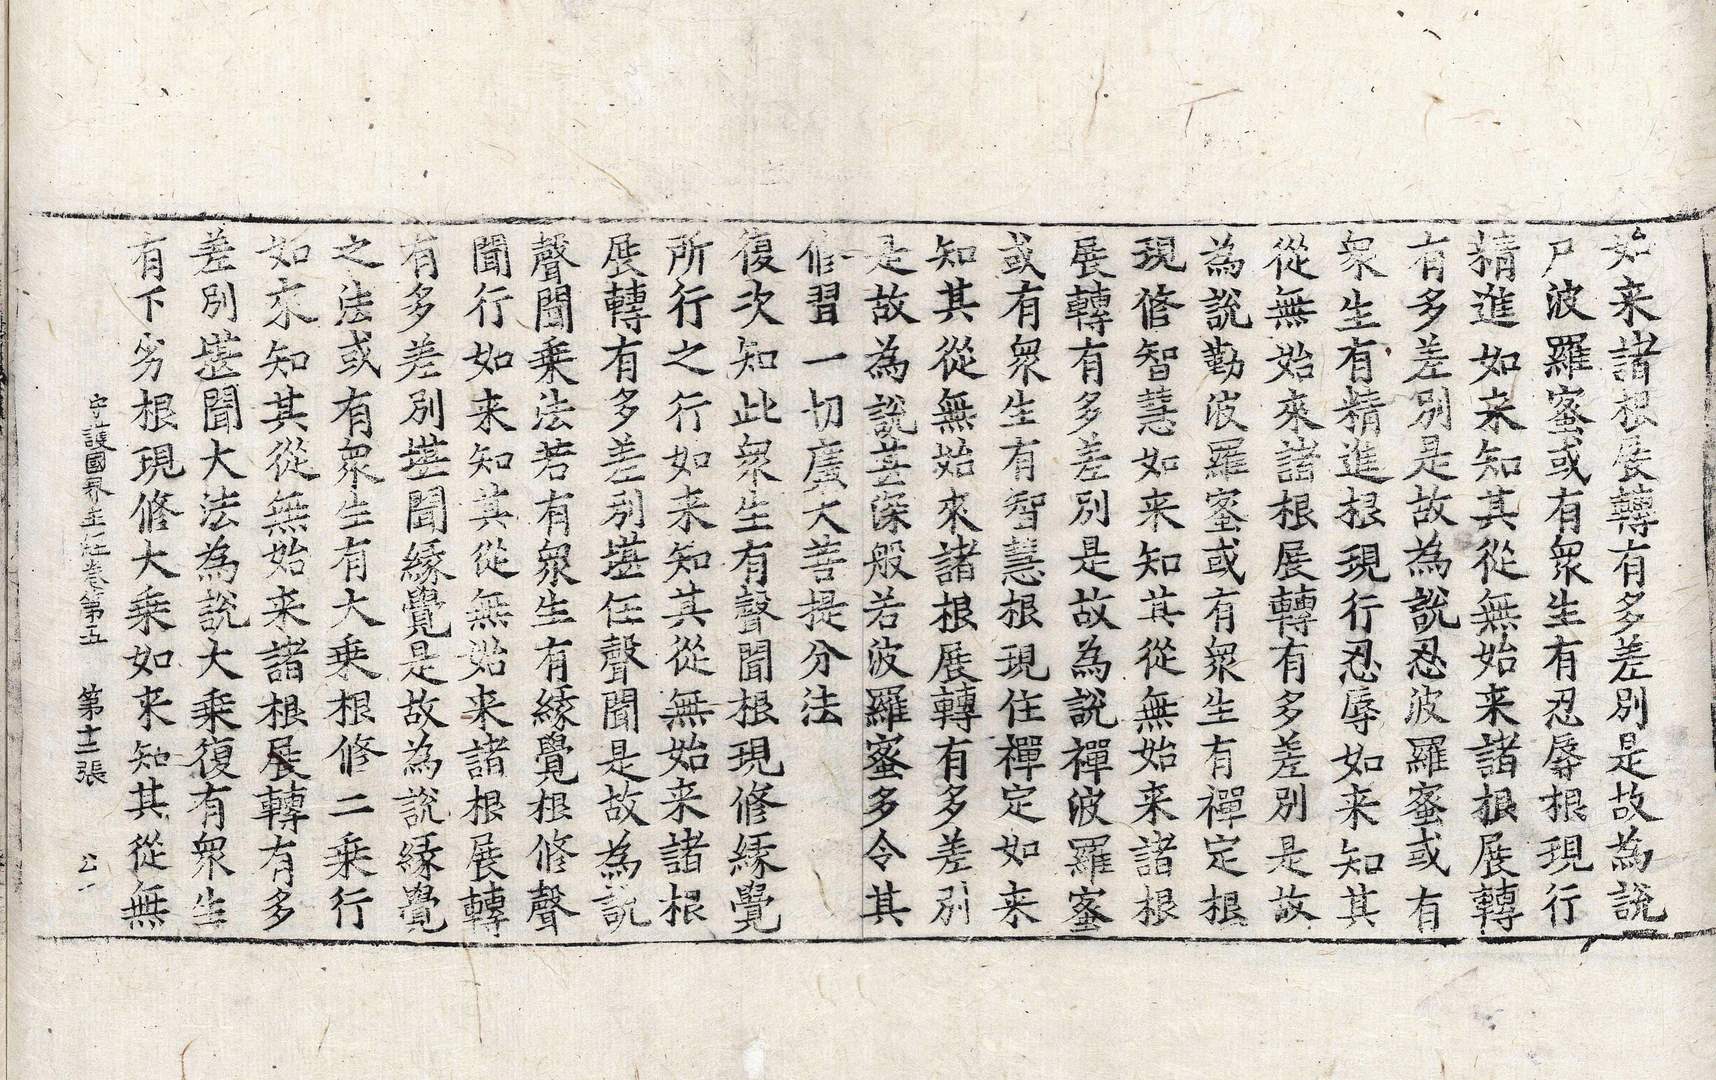 如来諸根展轉有多差別是故為說
尸波羅蜜或有衆生有忍辱根現行
精進如来知其從無始来諸根展轉
有多差別是故為說忍波羅蜜或有
衆生有精進根現行忍辱如来知其
從無始來諸根展轉有多差別是故
為說勤波羅蜜或有衆生有禪定根
現修智慧如来知其從無始来諸根
展轉有多差別是故為說禪波羅蜜
或有衆生有智慧根現住禪定如来
知其從無始來諸根展轉有多差別
是故為說甚深般若波羅蜜多令其
修習一切廣大菩提分法
復次知此衆生有聲聞根現修緣覺
所行之行如来知其從無始来諸根
展轉有多差別堪任聲聞是故為說
聲聞乗法若有衆生有緣覺根修聲
聞行如来知其從無始来諸根展轉
有多差別堪聞緣覺是故為說緣覺
之法或有衆生有大乗根修二乗行
如來知其從無始来諸根展轉有多
差別堪聞大法為說大乗復有衆生
有下劣根現修大乗如来知其從無
守護國界主経卷第五　第十二張